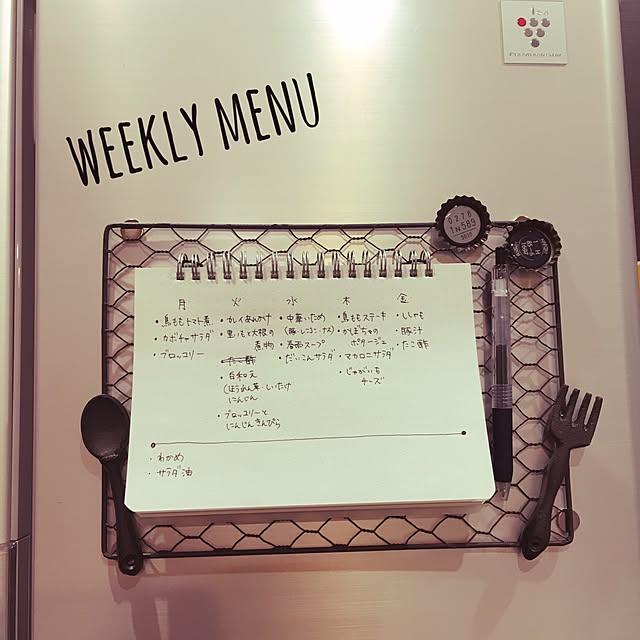 WEEKLY MENU
0278
1N589
月 火 水 木 金
・鳥ももトマト煮
・カボチャサラダ
・ブロッコリー
・カレイあんかけ
・里いもと大根の
煮物
たこ酢
・白和え
(ほうれん草・しいたけ
にんじん
・ブロッコリーと
にんじんきんぴら
・中華いため
(豚・レンコン・ナス)
・春雨スープ
・だいこんサラダ
・鳥ももステーキ
・かぼちゃの
ポタージュ
・マカロニサラダ
・じゃがいも
チーズ
・ししゃも
・豚汁
・たこ酢
・わかめ
・サラダ油